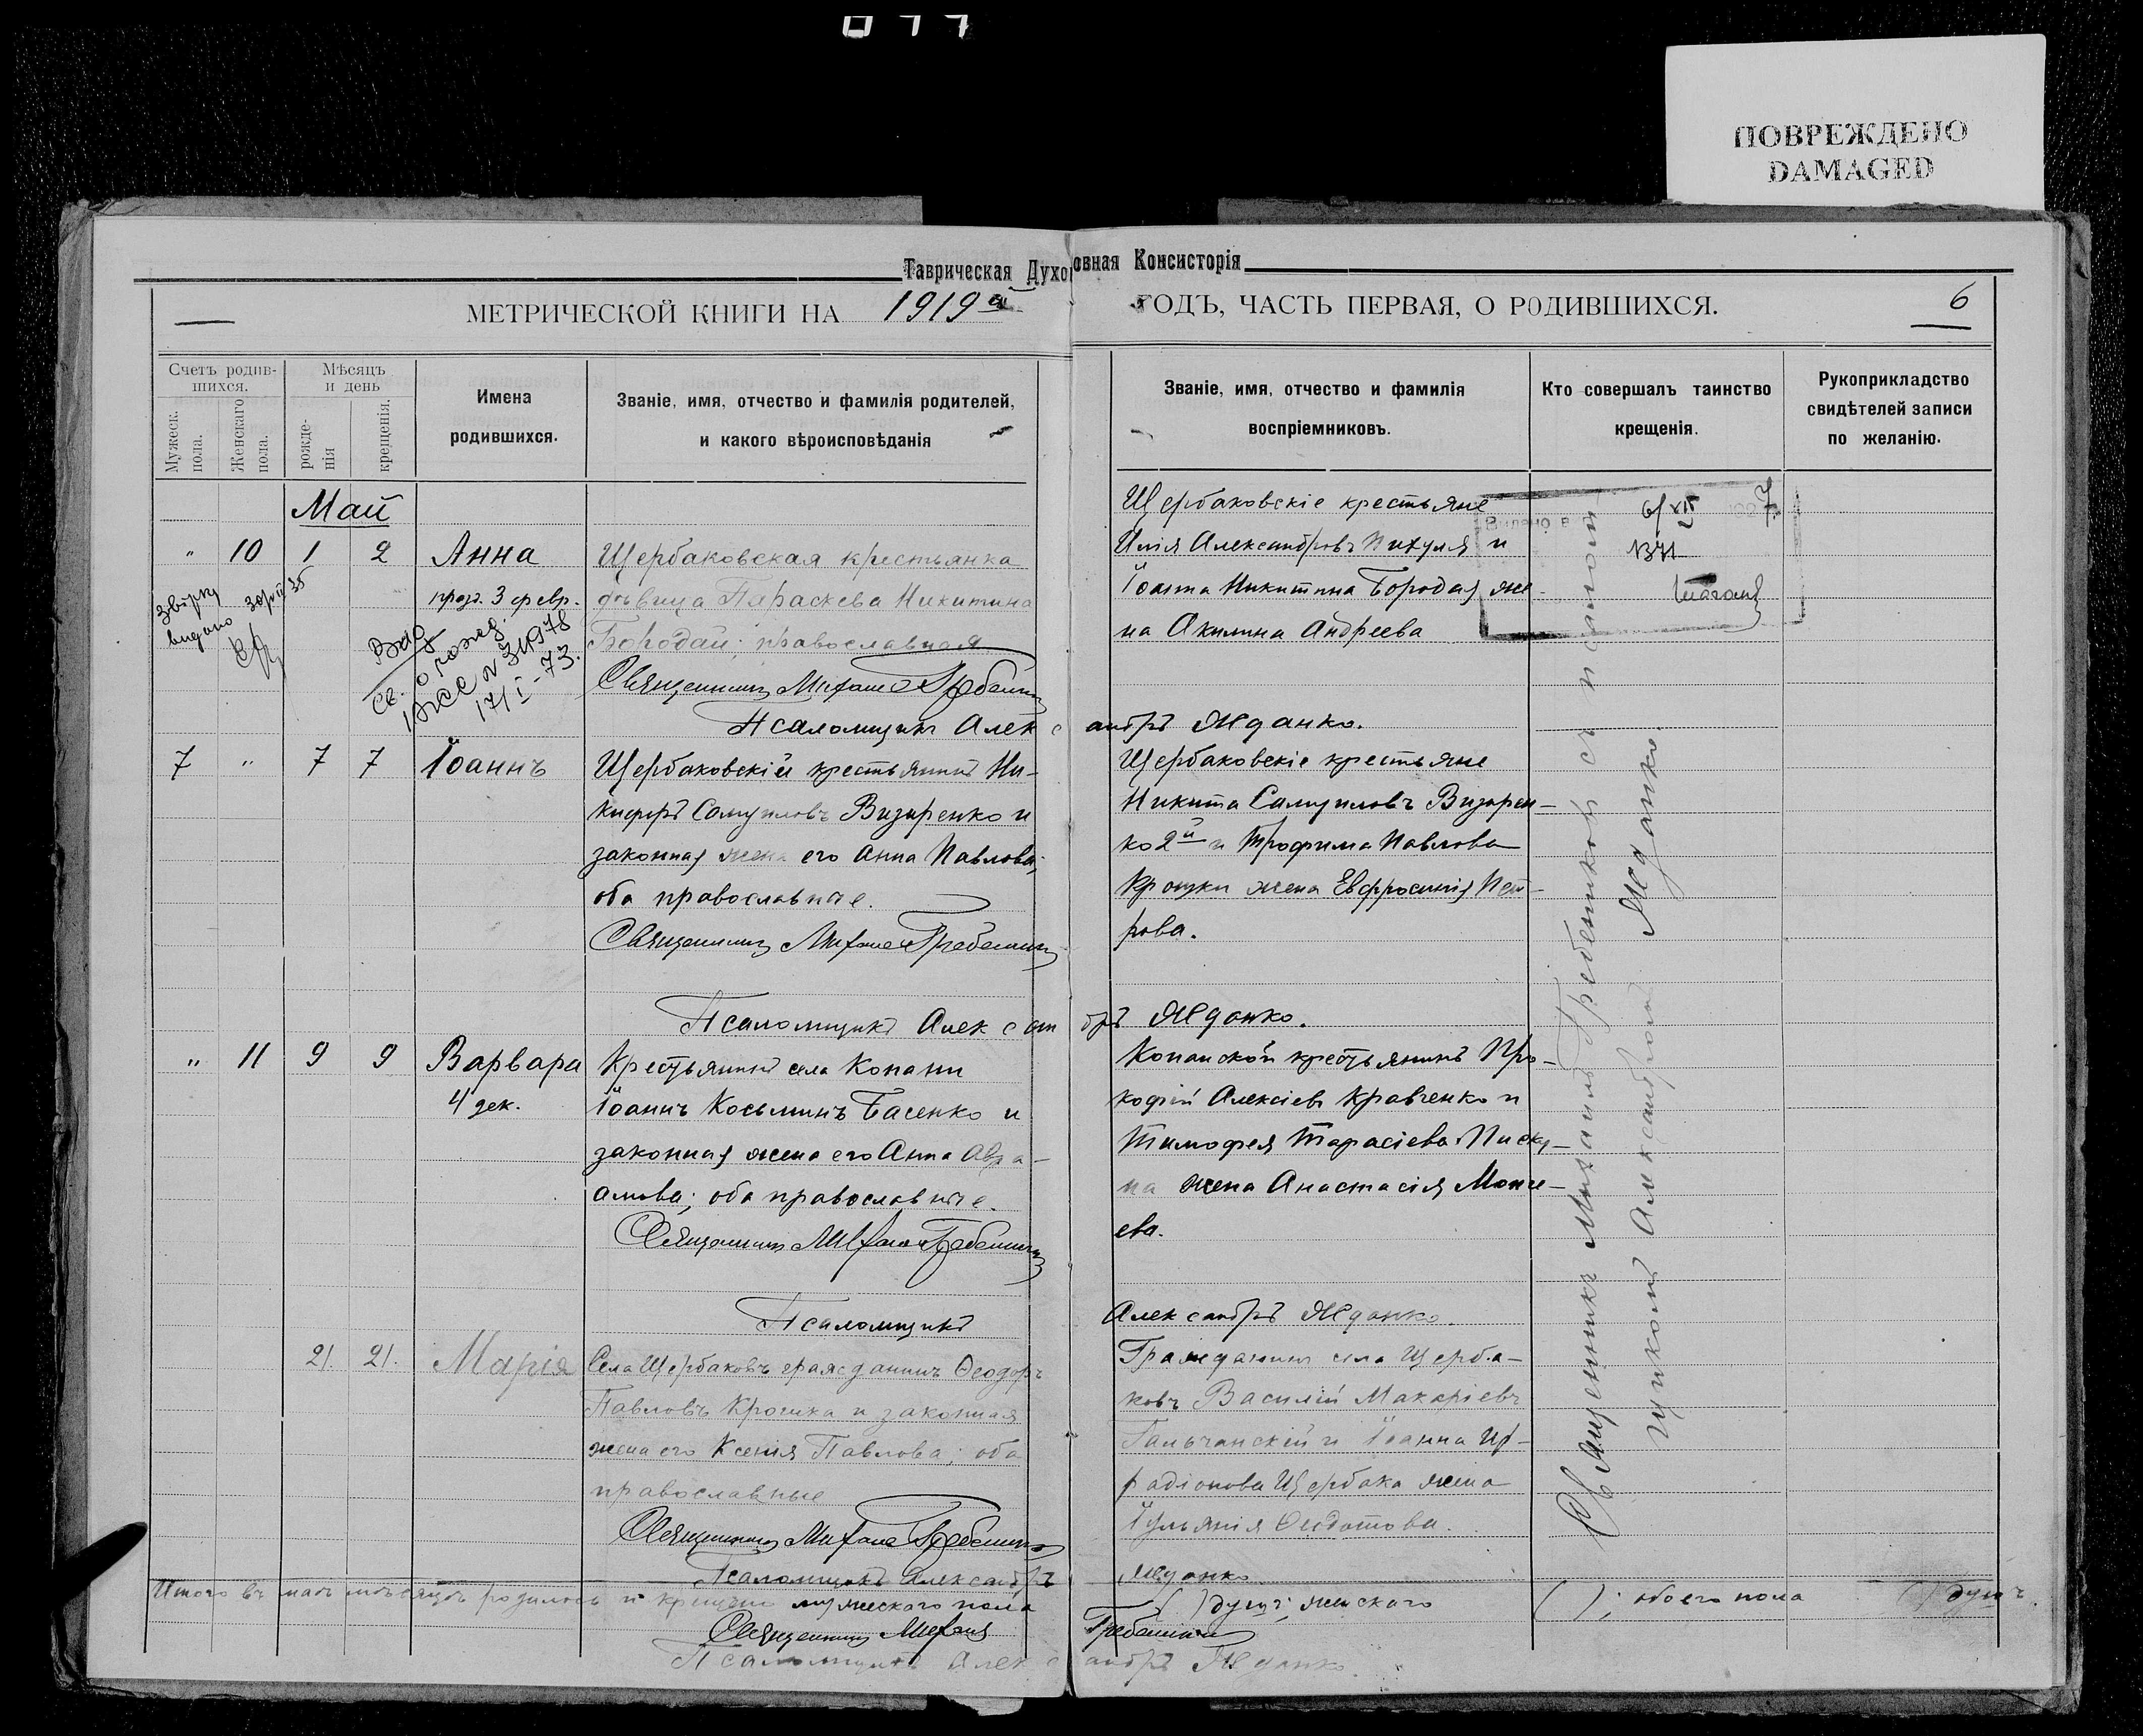 ПОВРЕЖДЕНО
DAMAGED
Таврическая Духовная Консисторія
МЕТРИЧЕСКОЙ КНИГИ НА 1919й ГОДЪ, ЧАСТЬ ПЕРВАЯ, О РОДИВШИХСЯ.
6
Счетъ родив-
шихся.
Мужеск.
пола.
Женскаго
пола.
Мѣсяцъ
и день
рожде-
нія
крещенія.
Имена
родившихся.
Званіе, имя, отчество и фамилія родителей,
и какого вѣроисповѣданія
Званіе, имя, отчество и фамилія
воспріемниковъ.
Кто совершалъ таинство
крещенія.
Рукоприкладство
свидѣтелей записи
по желанію.
Май
" 10 1 2 Анна
празд. 3 февр.
Щербаковская крестьянка
дѣвица Параскева Никитина
Бородай; православная
Священникъ Михаилъ Гребенник
Псаломщикъ Александръ Жданко.
Щербаковскіе крестьяне
Илія Александровъ Пихуля и
Іоанна Никитина Бородая же-
на Акилина Андреева
7 " 7 7 Іоаннъ
Щербаковскій крестьянинъ Ни-
кифръ Самуиловъ Визиренко и
законная жена его Анна Павлова;
оба православные.
Священникъ Михаилъ Гребенник
Псаломщикъ Александръ Жданко.
Щербаковскіе крестьяне
Никита Самуиловъ Визирен-
ко 2й и Трофима Павлова
Крошки жена Евфросинія Пет-
рова.
" 11 9 9 Варвара
4 дек.
Крестьянинъ села Копани
Іоаннъ Косьминъ Басенко и
законная жена его Анна Авра-
амова; оба православные.
Священникъ Михаилъ Гребенник
Псаломщикъ Александръ Жданко.
Копанской крестьянинъ Про-
кофій Алексіевъ Кравченко и
Тимофея Тарасіева Писку-
на жена Анастасія Моисе-
ева.
21. 21. Марія
Села Щербаковъ гражданинъ Ѳеодоръ
Павловъ Крошка и законная
жена его Ксенія Павлова; оба
православные
Священникъ Михаилъ Гребенник
Псаломщикъ Александръ Жданко
Гражданинъ села Щерба-
ковъ Василій Макаріевъ
Гальчанскій и Іоанна Ир-
радіонова Щербака жена
Іуліанія Ѳедотова.
Священникъ Михаилъ Гребенниковъ съ псалом-
щикомъ Александромъ Жданко.
Итого въ маѣ мѣсяцѣ родилось и крещено мужескаго пола ( ) душъ; женскаго ( ); обоего пола ( ) душъ.
Священникъ Михаилъ Гребенник
Псаломщикъ Александръ Жданко.